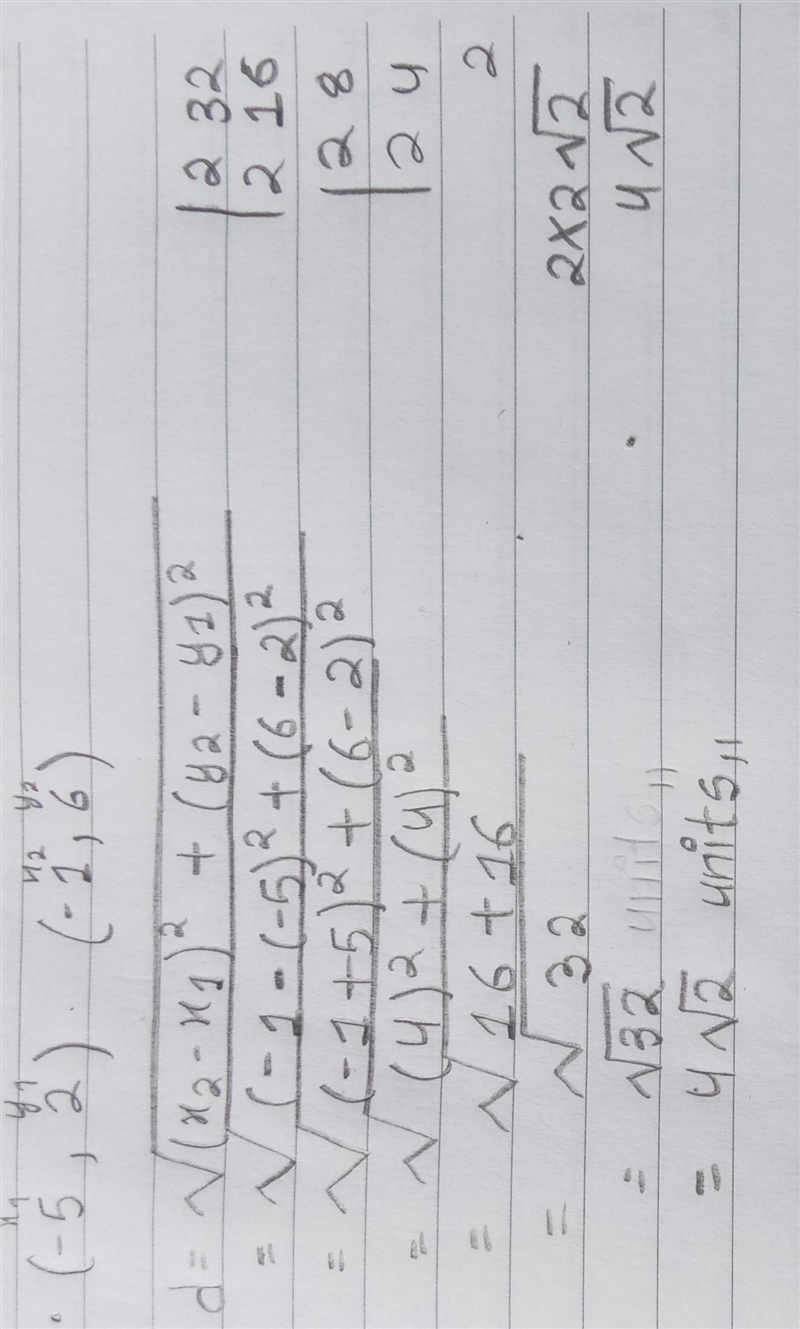 x1 y1 x2 y2
. (-5, 2) . (-1, 6)
d = √(x2 - x1)² + (y2 - y1)²
= √(-1 - (-5)² + (6 - 2)²
= √(-1 + 5)² + (6 - 2)²
= √(4)² + (4)²
= √16 + 16
= √32
= √32 units,,
= 4√2 units,,
2 32
2 16
2 8
2 4
2
2×2√2
4√2